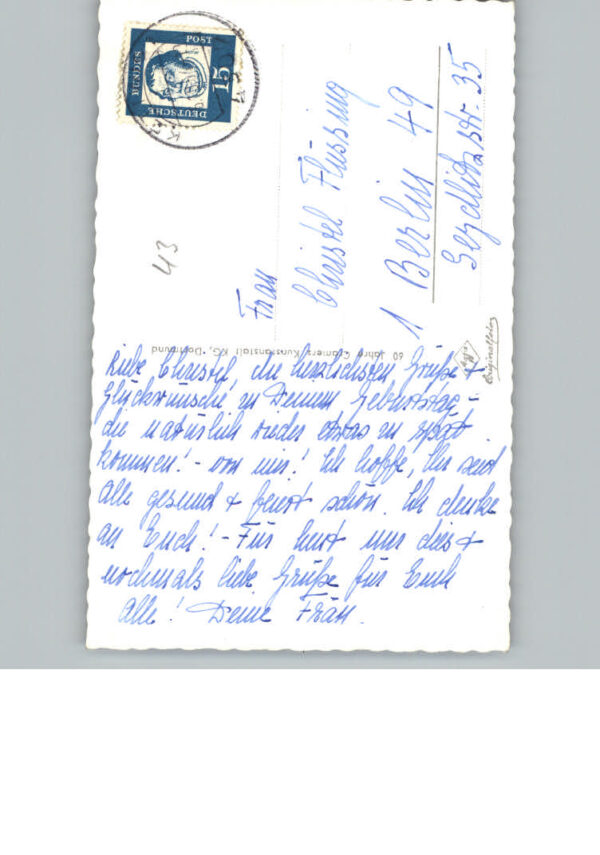 DEUTSCHE
BUNDES
POST
15
43
Frau
Christel Flüssing
1 Berlin 49
Seydlitzstr. 35
60 Jahre Cramers Kunstanstalt KG, Dortmund
Originalfoto
Liebe Christel, die herzlichsten Grüße +
Glückwünsche zu Deinem Geburtstag -
die natürlich wieder etwas zu spät
kommen! - von mir! Ich hoffe, Ihr seid
alle gesund + feiert schön. Ich denke
an Euch! - Für heut nur dies +
nochmals liebe Grüße für Euch
alle! Deine